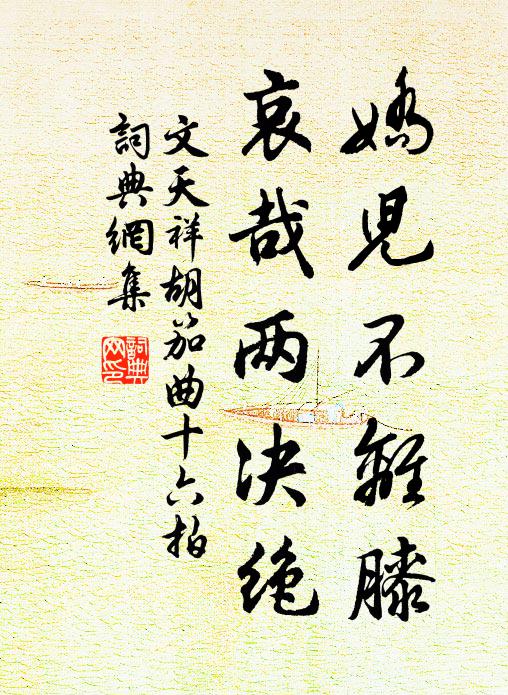 嬌児不離膝
哀哉两决绝
文天祥胡笳曲十六拍
詞典網集
詞典网印